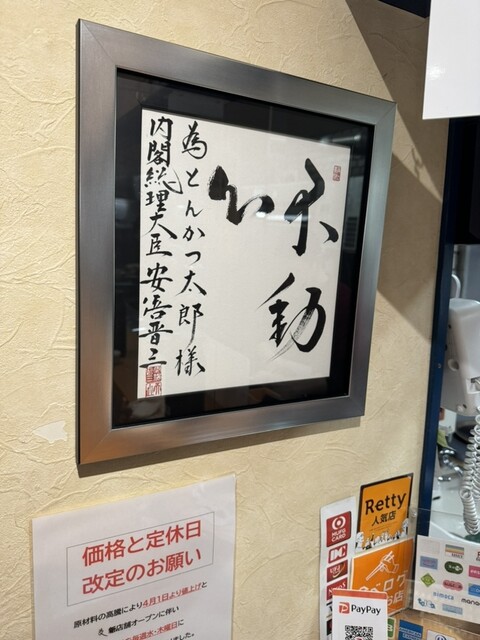 不動
心
為とんかつ太郎様
内閣総理大臣 安倍晋三
価格と定休日
改定のお願い
原材料の高騰により4月1日より値上げと
店舗オープンに伴い
毎週水・木曜日に
ました。
Retty
人気店
MUFG CARD
DC
PayPay
nimoca
manaca